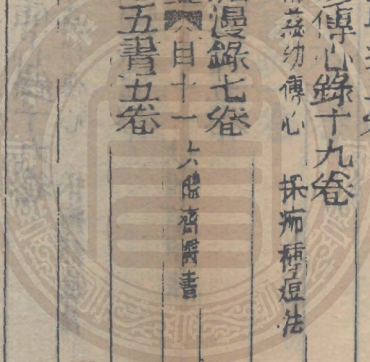 傳心錄十九卷
慈幼傳心 採痂種痘法
漫錄七卷
目十一 六醴齋醫書
五書五卷